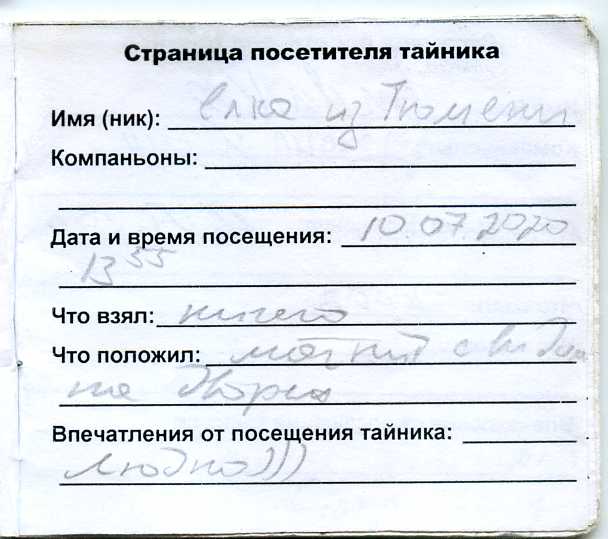 Страница посетителя тайника
Имя (ник): Елка из Тюмени
Компаньоны:
Дата и время посещения: 10.07.2020
13 55
Что взял: ничего
Что положил: магнит с видом
на
Впечатления от посещения тайника:
Людно)))